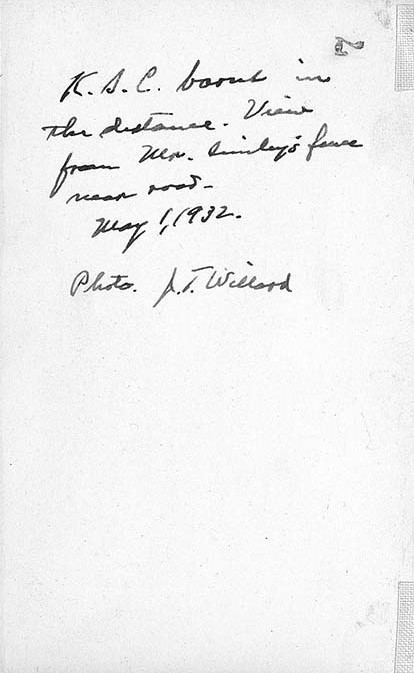 7
K. S. C. in
the distance. View
from Mr. fence
near road-
May 1, 1932.
Photo. J. T. Willard